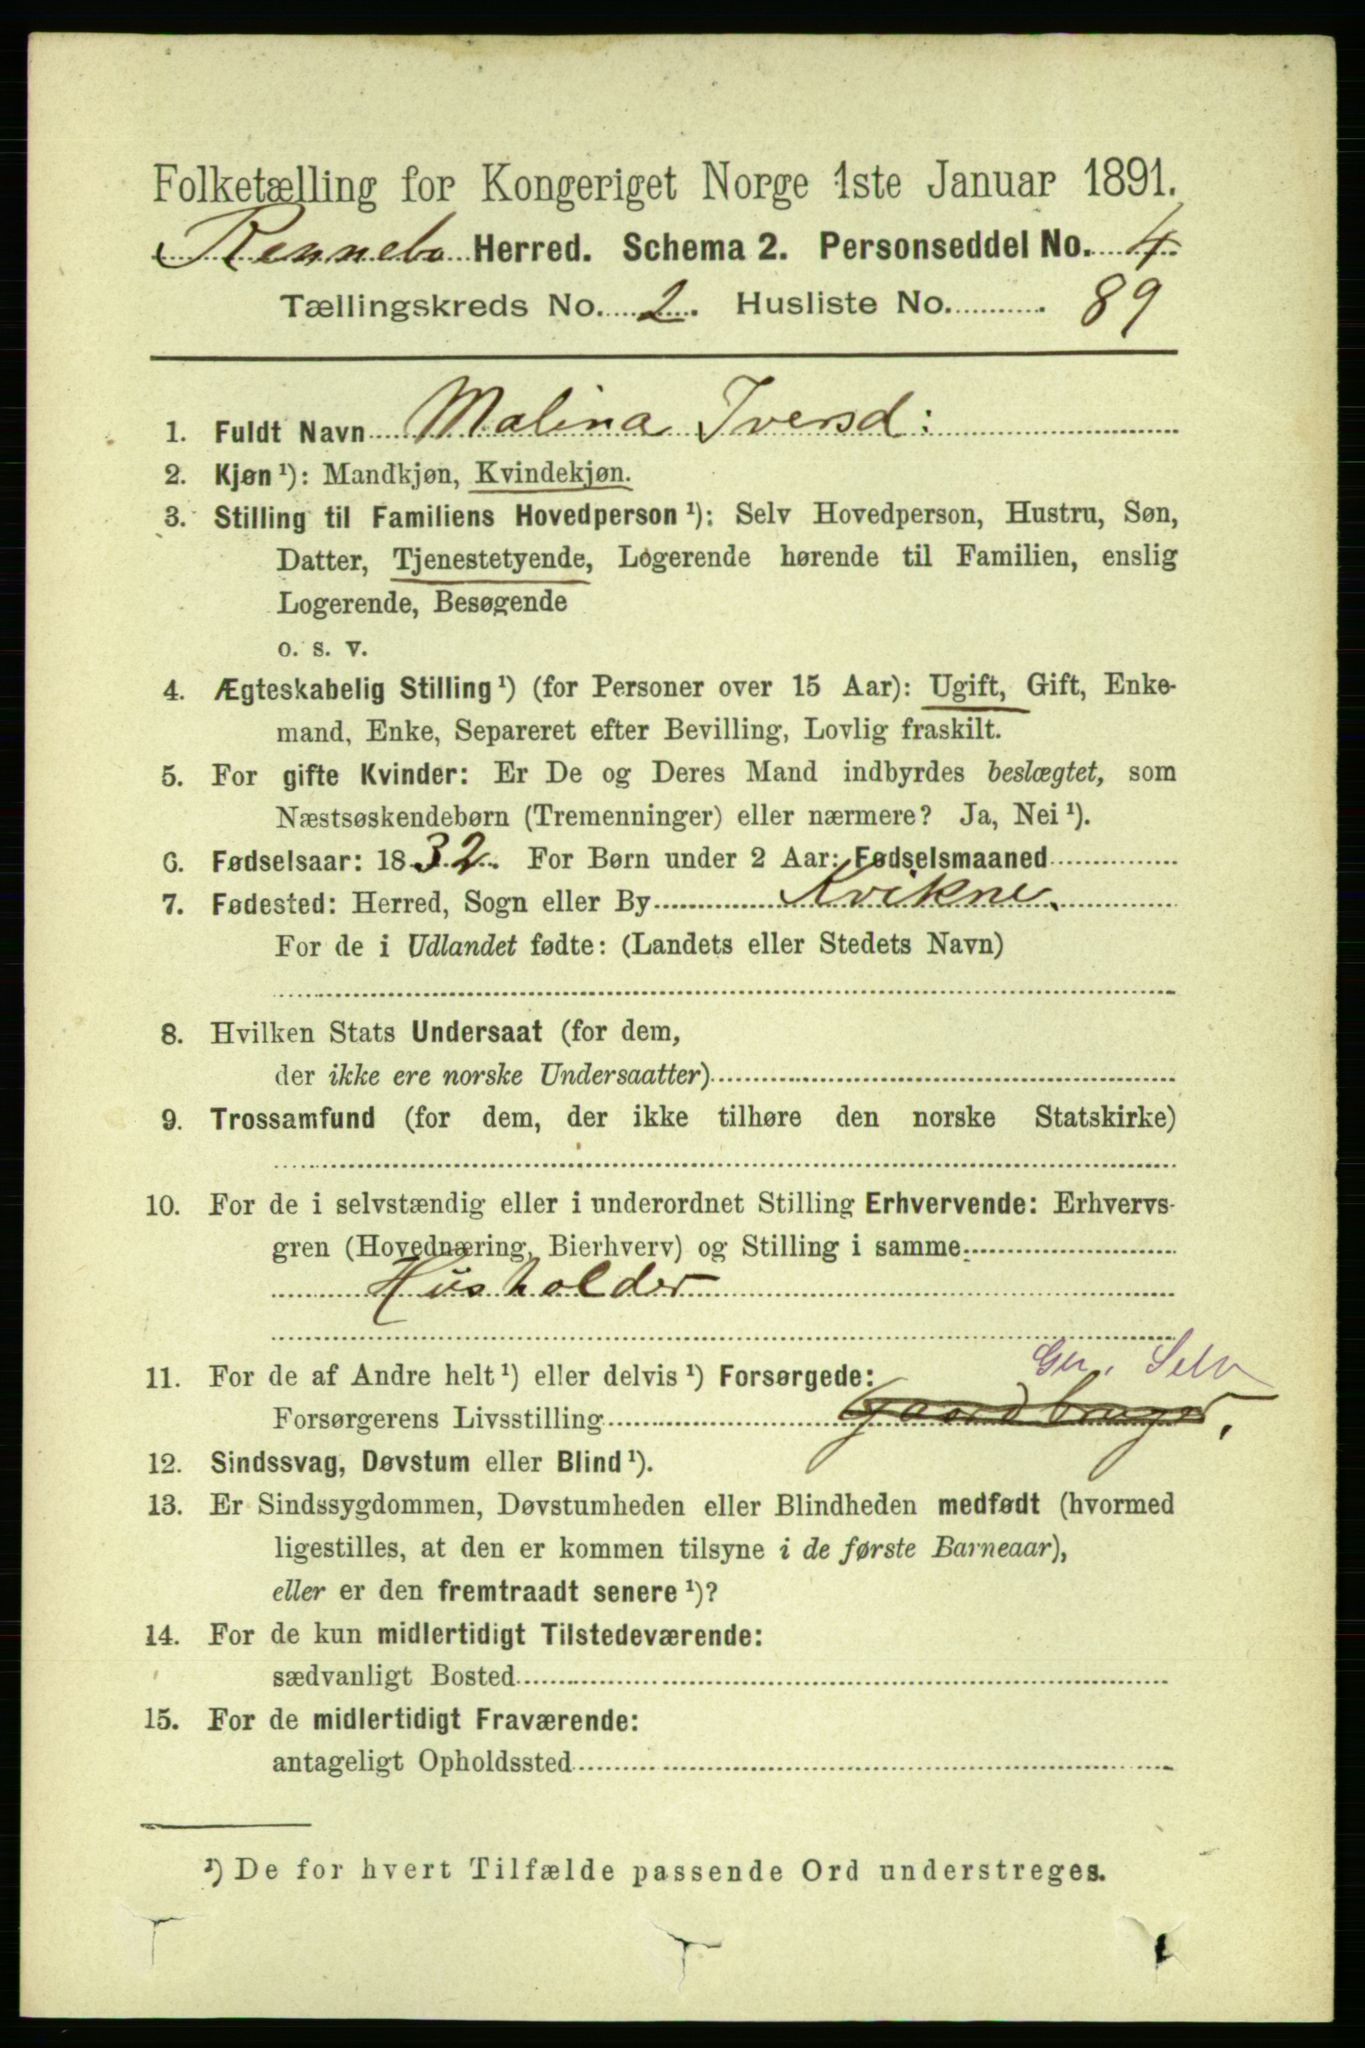 Folketælling for Kongeriget Norge 1ste Januar 1891.
Rennebo Herred. Schema 2. Personseddel No. 4
Tællingskreds No. 2. Husliste No. 89
1. Fuldt Navn Malina Iversd:
2. Kjøn¹): Mandkjøn, Kvindekjøn.
3. Stilling til Familiens Hovedperson¹): Selv Hovedperson, Hustru, Søn,
Datter, Tjenestetyende, Logerende hørende til Familien, enslig
Logerende, Besøgende
o. s. v.
4. Ægteskabelig Stilling¹) (for Personer over 15 Aar): Ugift, Gift, Enke-
mand, Enke, Separeret efter Bevilling, Lovlig fraskilt.
5. For gifte Kvinder: Er De og Deres Mand indbyrdes beslægtet, som
Næstsøskendebørn (Tremenninger) eller nærmere? Ja, Nei¹).
6. Fødselsaar: 1832. For Børn under 2 Aar: Fødselsmaaned
7. Fødested: Herred, Sogn eller By Kvikne.
For de i Udlandet fødte: (Landets eller Stedets Navn)
8. Hvilken Stats Undersaat (for dem,
der ikke ere norske Undersaatter)
9. Trossamfund (for dem, der ikke tilhøre den norske Statskirke)
10. For de i selvstændig eller i underordnet Stilling Erhvervende: Erhvervs-
gren (Hovednæring, Bierhverv) og Stilling i samme.
Husholder
Selv
11. For de af Andre helt¹) eller delvis¹) Forsørgede:
Forsørgerens Livsstilling Gaardbruger.
12. Sindssvag, Døvstum eller Blind¹).
13. Er Sindssygdommen, Døvstumheden eller Blindheden medfødt (hvormed
ligestilles, at den er kommen tilsyne i de første Barneaar),
eller er den fremtraadt senere¹)?
14. For de kun midlertidigt Tilstedeværende:
sædvanligt Bosted
15. For de midlertidigt Fraværende:
antageligt Opholdssted
¹) De for hvert Tilfælde passende Ord understreges.